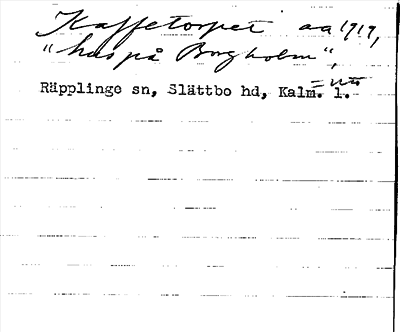 Kaffetorpet aa 1919,
"hus på Borgholm",
Räpplinge sn, Slättbo hd, Kalm. l.